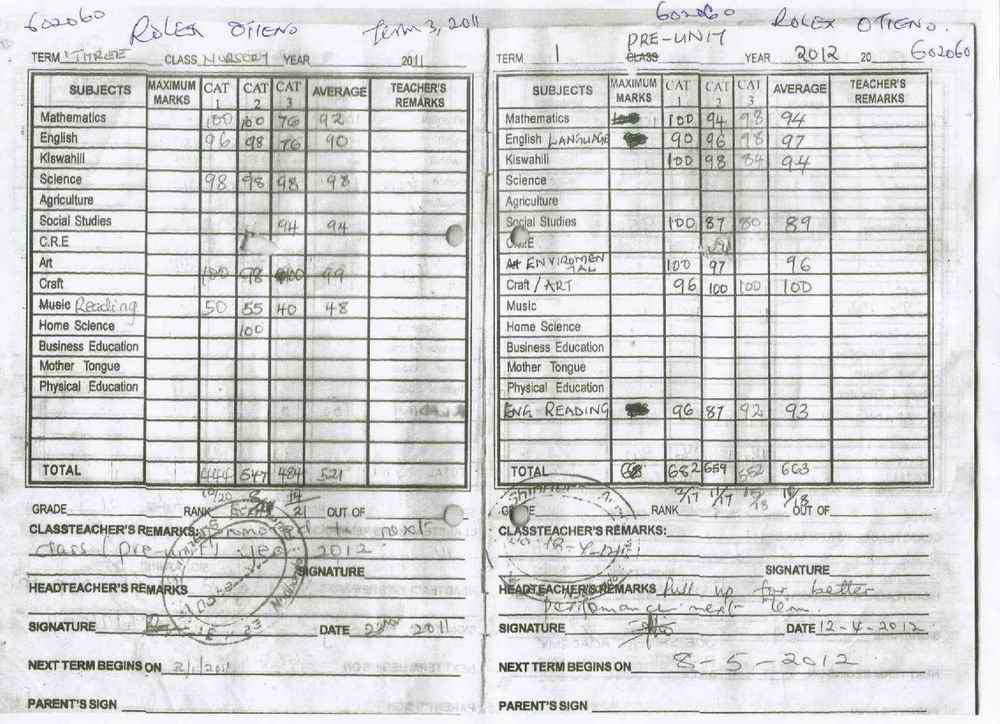 602060 ROLEX OTIENO Term 3, 2011
TERM THREE CLASS NURSERY YEAR 2011
SUBJECTS MAXIMUM MARKS CAT 1 CAT 2 CAT 3 AVERAGE TEACHER'S REMARKS
Mathematics 100 100 76 92
English 96 98 76 90
Kiswahili
Science 98 98 98 98
Agriculture
Social Studies 94 94
C.R.E
Art
Craft 100 98 100 99
Music Reading 50 55 40 48
Home Science 100
Business Education
Mother Tongue
Physical Education
TOTAL 444 547 484 521
GRADE RANK 21 OUT OF
CLASSTEACHER'S REMARKS: Promoted to next
class (pre-unit) year 2012
SIGNATURE
HEADTEACHER'S REMARKS
SIGNATURE DATE 2011
NEXT TERM BEGINS ON 2/1/2011
PARENT'S SIGN
602060 ROLEX OTIENO
602060
PRE-UNIT
TERM 1 CLASS YEAR 2012 20
SUBJECTS MAXIMUM MARKS CAT 1 CAT 2 CAT 3 AVERAGE TEACHER'S REMARKS
Mathematics 100 94 98 94
English LANGUAGE 90 96 98 97
Kiswahili 100 98 84 94
Science
Agriculture
Social Studies 100 87 80 89
C.R.E
Art ENVIROMENTAL 100 97 96
Craft / ART 96 100 100 100
Music
Home Science
Business Education
Mother Tongue
Physical Education
ENG READING 96 87 92 93
TOTAL 682 659 652 663
GRADE RANK OUT OF
CLASSTEACHER'S REMARKS:
SIGNATURE
HEADTEACHER'S REMARKS Pull up for better
performance next term
SIGNATURE DATE 12-4-2012
NEXT TERM BEGINS ON 8-5-2012
PARENT'S SIGN